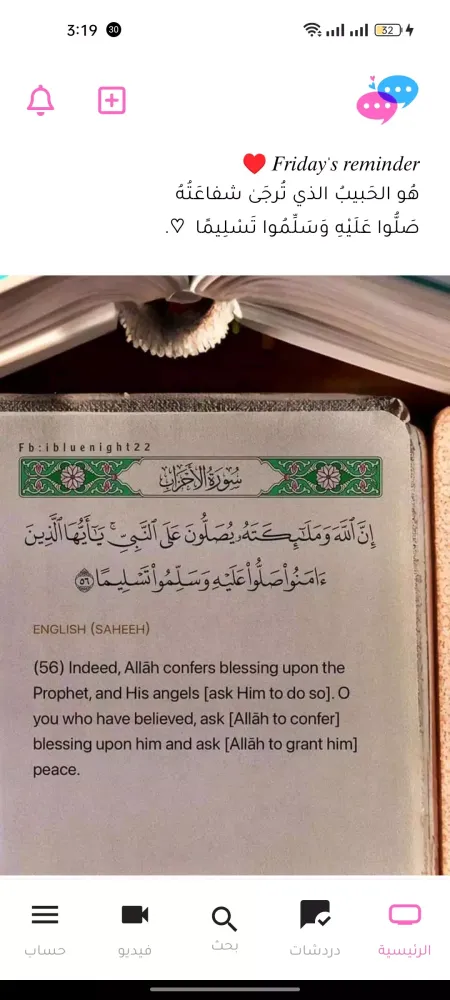 3:19 30 32
Friday's reminder
هُو الحَبيبُ الذي تُرجَىٰ شفاعَتُهُ
صَلُّوا عَلَيْهِ وَسَلِّمُوا تَسْلِيمًا ♡.
Fb:ibluenight22
سُورَةُ الأَحْزَابِ
إِنَّ ٱللَّهَ وَمَلَـٰٓئِكَتَهُۥ يُصَلُّونَ عَلَى ٱلنَّبِىِّ ۚ يَـٰٓأَيُّهَا ٱلَّذِينَ
ءَامَنُوا۟ صَلُّوا۟ عَلَيْهِ وَسَلِّمُوا۟ تَسْلِيمًا ٥٦
ENGLISH (SAHEEH)
(56) Indeed, Allāh confers blessing upon the
Prophet, and His angels [ask Him to do so]. O
you who have believed, ask [Allāh to confer]
blessing upon him and ask [Allāh to grant him]
peace.
الرئيسية دردشات بحث فيديو حساب